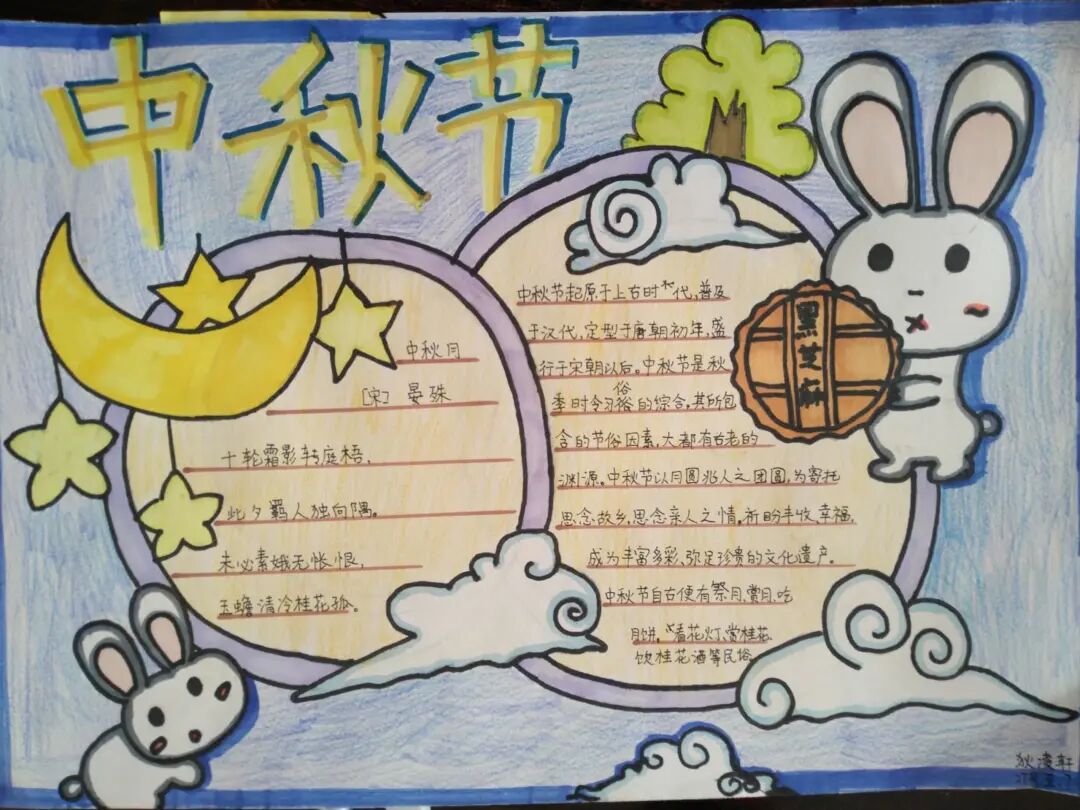 中秋节
中秋月
[宋] 晏殊
十轮霜影转庭梧,
此夕羁人独向隅。
未必素娥无怅恨,
玉蟾清冷桂花孤。
中秋节起原于上古时代,普及
于汉代,定型于唐朝初年,盛
行于宋朝以后。中秋节是秋
季时令习俗的综合,其所包
含的节俗因素,大都有古老的
渊源。中秋节以月圆兆人之团圆,为寄托
思念故乡,思念亲人之情。祈盼丰收幸福,
成为丰富多彩、弥足珍贵的文化遗产。
中秋节自古便有祭月、赏月、吃
月饼、看花灯、赏桂花、
饮桂花酒等民俗,
黑芝麻
狄凌轩